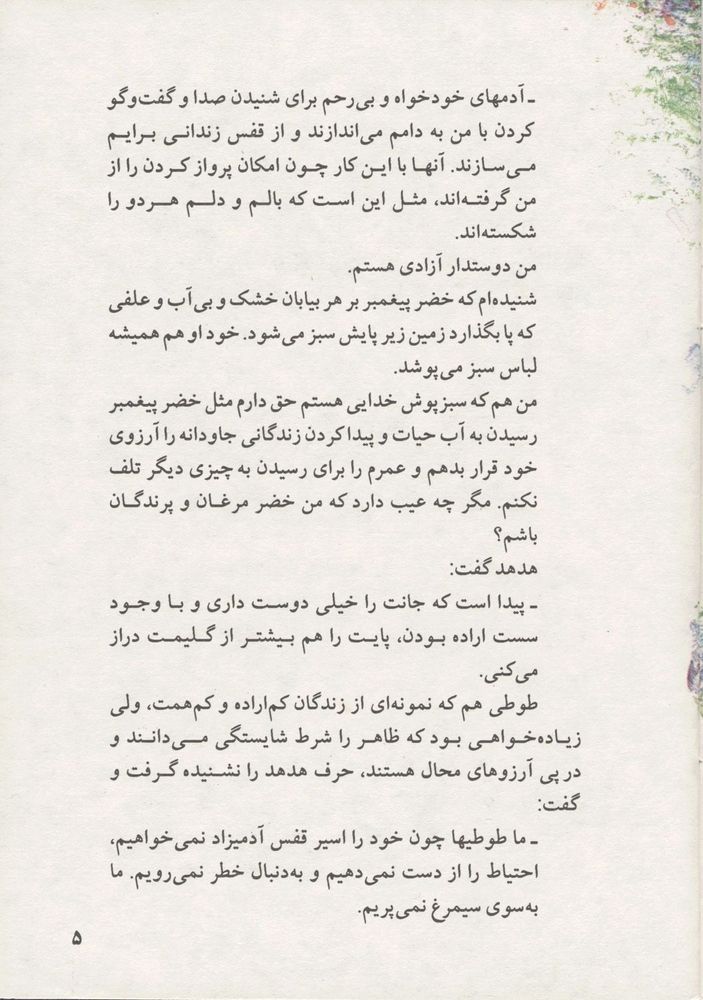 ـ آدمهای خودخواه و بی‌رحم برای شنیدن صدا و گفت‌وگو
کردن با من به دامم می‌اندازند و از قفس زندانی برایم
می‌سازند. آنها با این کار چون امکان پرواز کردن را از
من گرفته‌اند، مثل این است که بالم و دلم هردو را
شکسته‌اند.
من دوستدار آزادی هستم.
شنیده‌ام که خضر پیغمبر بر هر بیابان خشک و بی‌آب و علفی
که پا بگذارد زمین زیر پایش سبز می‌شود. خود او هم همیشه
لباس سبز می‌پوشد.
من هم که سبزپوش خدایی هستم حق دارم مثل خضر پیغمبر
رسیدن به آب حیات و پیدا کردن زندگانی جاودانه را آرزوی
خود قرار بدهم و عمرم را برای رسیدن به چیزی دیگر تلف
نکنم. مگر چه عیب دارد که من خضر مرغان و پرندگان
باشم؟
هدهد گفت:
ـ پیدا است که جانت را خیلی دوست داری و با وجود
سست اراده بودن، پایت را هم بیشتر از گلیمت دراز
می‌کنی.
طوطی هم که نمونه‌ای از زندگان کم‌اراده و کم‌همت، ولی
زیاده‌خواهی بود که ظاهر را شرط شایستگی می‌دانند و
در پی آرزوهای محال هستند، حرف هدهد را نشنیده گرفت و
گفت:
ـ ما طوطیها چون خود را اسیر قفس آدمیزاد نمی‌خواهیم،
احتیاط را از دست نمی‌دهیم و به‌دنبال خطر نمی‌رویم. ما
به‌سوی سیمرغ نمی‌پریم.
۵